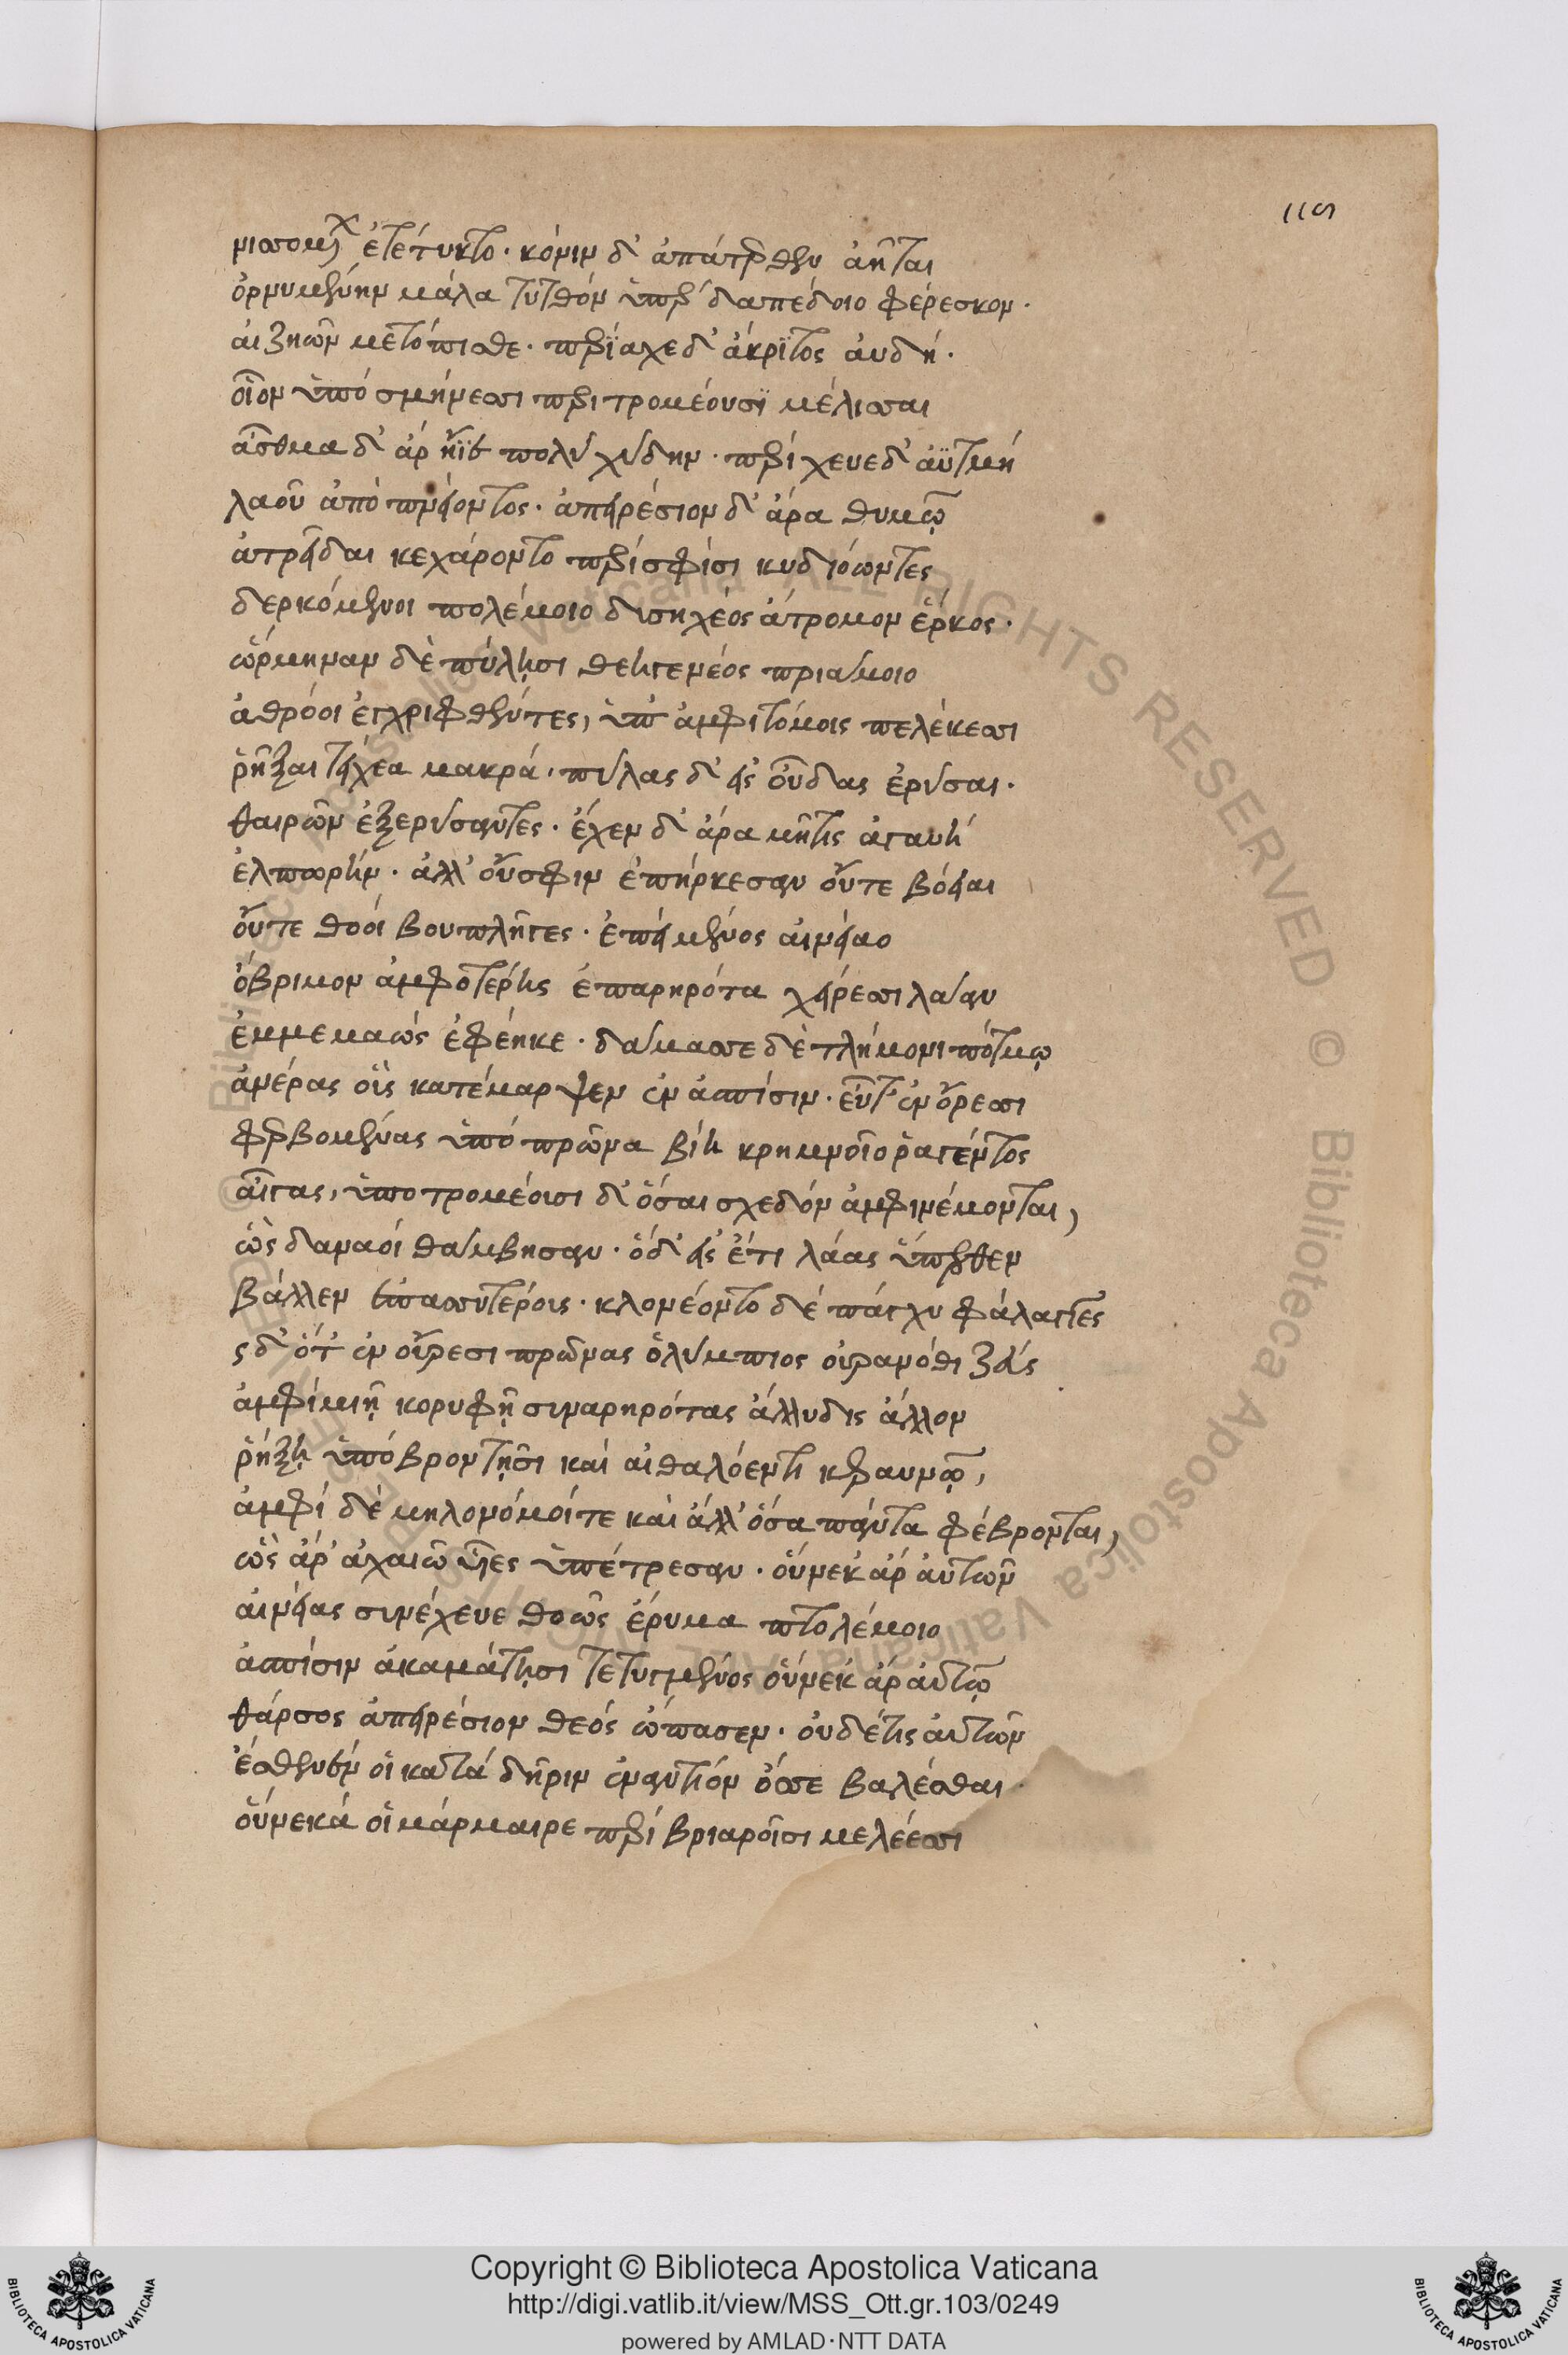 115
νισσομένων ἐτέτυκτο· κόνιν δ' ἀπάτερθεν ἀῆται
ὀρνυμένην μάλα τυτθὸν ὑπὲρ δαπέδοιο φέρεσκον·
αἰζηῶν μετόπισθε· περίαχε δ' ἄκριτος αὐδή·
οἷον ὑπὸ σμήνεσσι περιτρομέουσι μέλισσαι
ἆσθμα δ' ἄρ' ἤϊε πολὺ χύδην· περίχευε δ' ἀϋτμὴ
λαοῦ ἀποπνείοντος· ἀπειρέσιον δ' ἄρα θυμῷ
ἀτρεῖδαι κεχάροντο περὶ σφίσι κυδιόωντες
δερκόμενοι πολέμοιο δυσηχέος ἄτρομον ἕρκος·
ὥρμηναν δὲ πύλῃσι θεηγενέος πριάμοιο
ἀθρόοι ἐγχριφθέντες, ὑπ' ἀμφιτόμοις πελέκεσσι
ῥῆξαι τείχεα μακρά· πύλας δ' εἰς οὖδας ἐρύσαι·
θαιρῶν ἐξερύσαντες· ἔχεν δ' ἄρα μῆτις ἀγαυὴ
ἐλπωρήν· ἀλλ' οὔ σφιν ἐπήρκεσαν οὔτε βόειαι
οὔτε θοοὶ βουπλῆγες· ἐπεὶ μένος αἰνείαο
ὄβριμον ἀμφοτέρῃς ἐπαρηρότα χείρεσσι λᾶαν
ἐμμεμαὼς ἐφέηκε· δάμασσε δὲ τλήμονι πότμῳ
ἀνέρας οἳς κατέμαρψεν ἐν ἀσπίσιν· εὖτ' ἐν ὄρεσσι
φερβομένας ὑπὸ πρῶνα βίη κρημνοῖο ῥαγέντος
αἶγας, ὑποτρομέοισι δ' ὅσαι σχεδὸν ἀμφινέμονται,
ὣς δαναοὶ θάμβησαν· ὁ δ' εἰς ἔτι λᾶας ὕπερθεν
βάλλεν ἐπασσυτέρους· κλονέοντο δὲ πάγχυ φάλαγγες
ς δ' ὅτ' ἐν οὔρεσι πρῶνας ὀλύμπιος οὐρανόθι ζεὺς
ἀμφὶ μιῇ κορυφῇ συναρηρότας ἄλλυδις ἄλλον
ῥήξῃ ὑπὸ βροντῇσι καὶ αἰθαλόεντι κεραυνῷ,
ἀμφὶ δὲ μηλονόμοί τε καὶ ἄλλ' ὅσα πάντα φέβρονται,
ὣς ἄρ' ἀχαιῶν υἷες ὑπέτρεσαν· οὕνεκ' ἄρ' αὐτῶν
αἰνείας συνέχευε θοῶς ἔρυμα πτολέμοιο
ἀσπίσιν ἀκαμάτῃσι τετυγμένος οὕνεκ' ἄρ' αὐτῷ
θάρσος ἀπειρέσιον θεὸς ὤπασεν· οὐδέ τις αὐτῶν
ἔσθενεν οἱ κατὰ δῆριν ἐναντίον ὄσσε βαλέσθαι·
οὕνεκά οἱ μάρμαιρε περὶ βριαροῖσι μελέεσσι
Copyright © Biblioteca Apostolica Vaticana
http://digi.vatlib.it/view/MSS_Ott.gr.103/0249
powered by AMLAD·NTT DATA